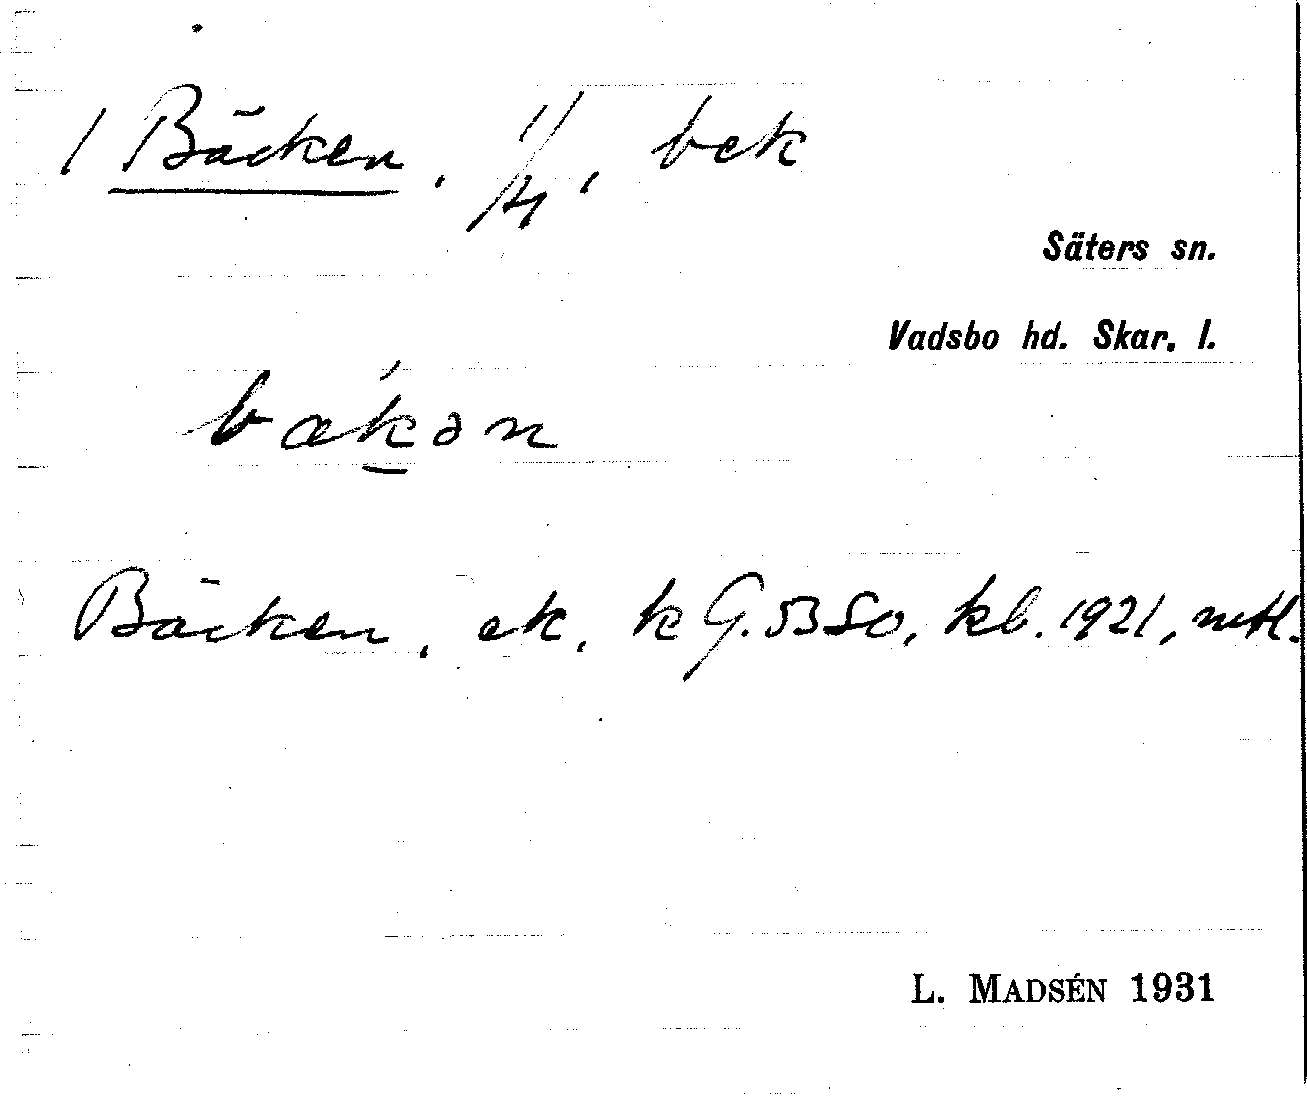 1 Bäcken, 1/4, bek
Säters sn.
Vadsbo hd. Skar. l.
bækən
Bäcken, ek, k G. 53 SO, kb. 1921, mtl.
L. MADSÉN 1931